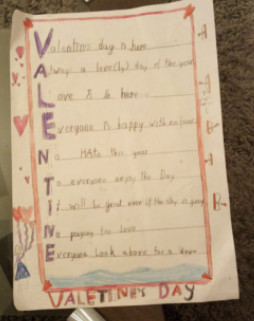 Valentines day is here
Always a love(ly) day of the year
Love is to here
Everyone is happy with no
No HAte this year
To everyone enjoy the Day
It will be good even if the sky is grey
No paying for love
Everyone Look above for a dove
VALETINE'S DAY